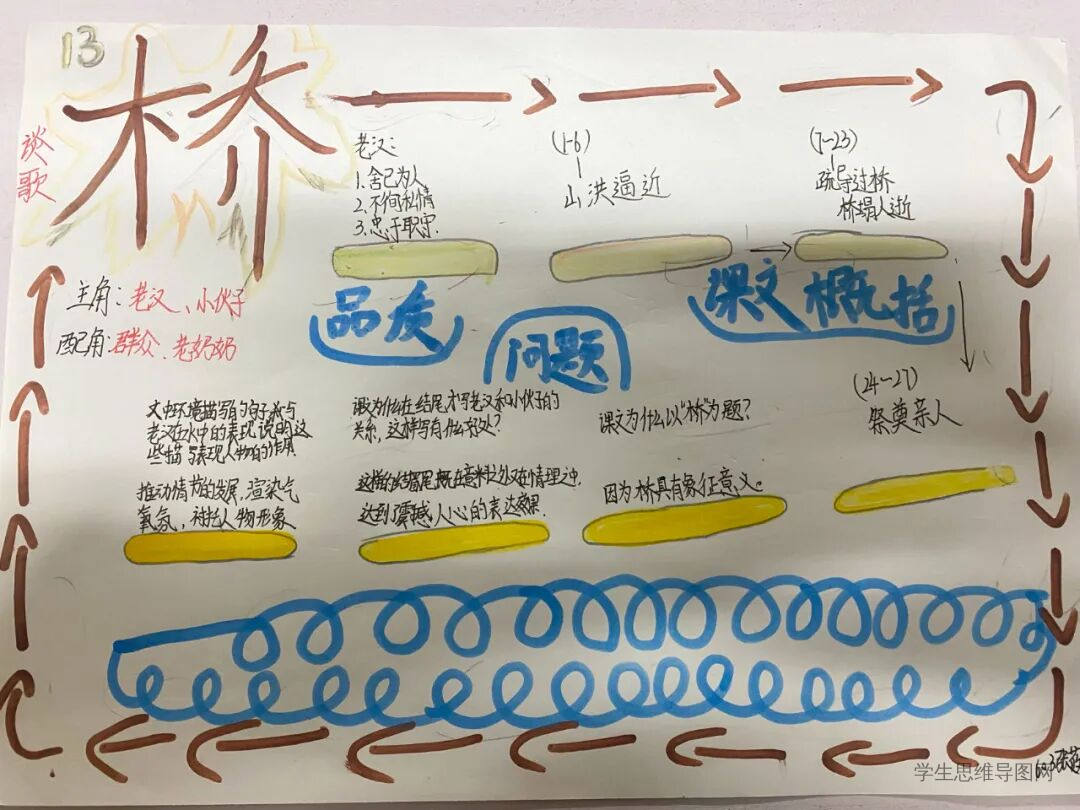 13
桥
谈歌
主角：老汉、小伙子
配角：群众、老奶奶
老汉：
1.舍己为人
2.不徇私情
3.忠于职守.
(1-6)
山洪逼近
(7-23)
疏导过桥
桥塌人逝
品质
问题
课文概括
(24-27)
祭奠亲人
文中环境描写的句子,
老汉在水中的表现,说明这
些描写表现人物的作用
推动情节的发展,渲染气
氛,衬托人物形象
课文为什么在结尾才写老汉和小伙子的
关系,这样写有什么好处?
这样的结尾既在意料之外又在情理之中.
达到震撼人心的表达效果.
课文为什么以"桥"为题?
因为桥具有象征意义。
学生思维导图网